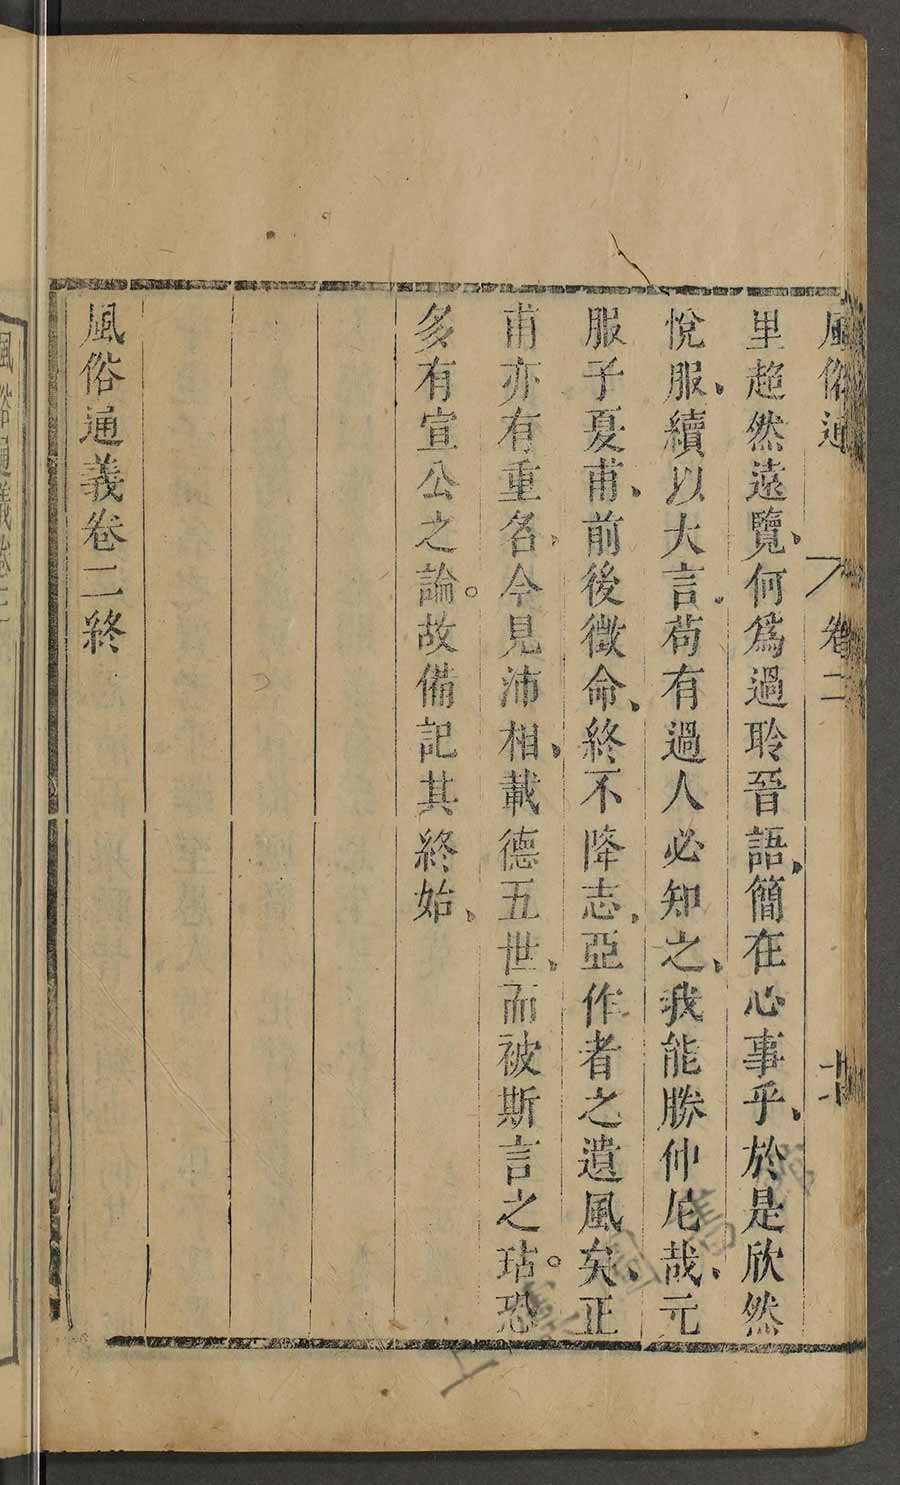 風俗通
卷二
里趙然遠覽、何為過聆晉語、簡在心事乎、於是欣然
悅服、續以大言、苟有過人必知之、我能勝仲尼哉、元
服子夏甫、前後徵命、終不降志、亞作者之遺風矣、正
甫亦有重名、今見沛相、載德五世、而被斯言之玷。恐
多有宣公之論。故備記其終始、
風俗通義卷二終